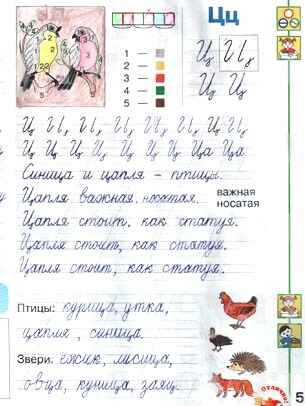 Цц
1 —
2 —
3 —
4 —
5 —
Ц Ц
Ц Ц Ц Ц Ц Ц Ц Ца Ца
Синица и цапля – птицы.
Цапля важная, носатая.
важная
носатая
Цапля стоит, как статуя.
Цапля стоит, как статуя.
Цапля стоит, как статуя.
Птицы: курица, утка,
цапля, синица.
Звери: ёжик, лисица,
овца, куница, заяц.
5